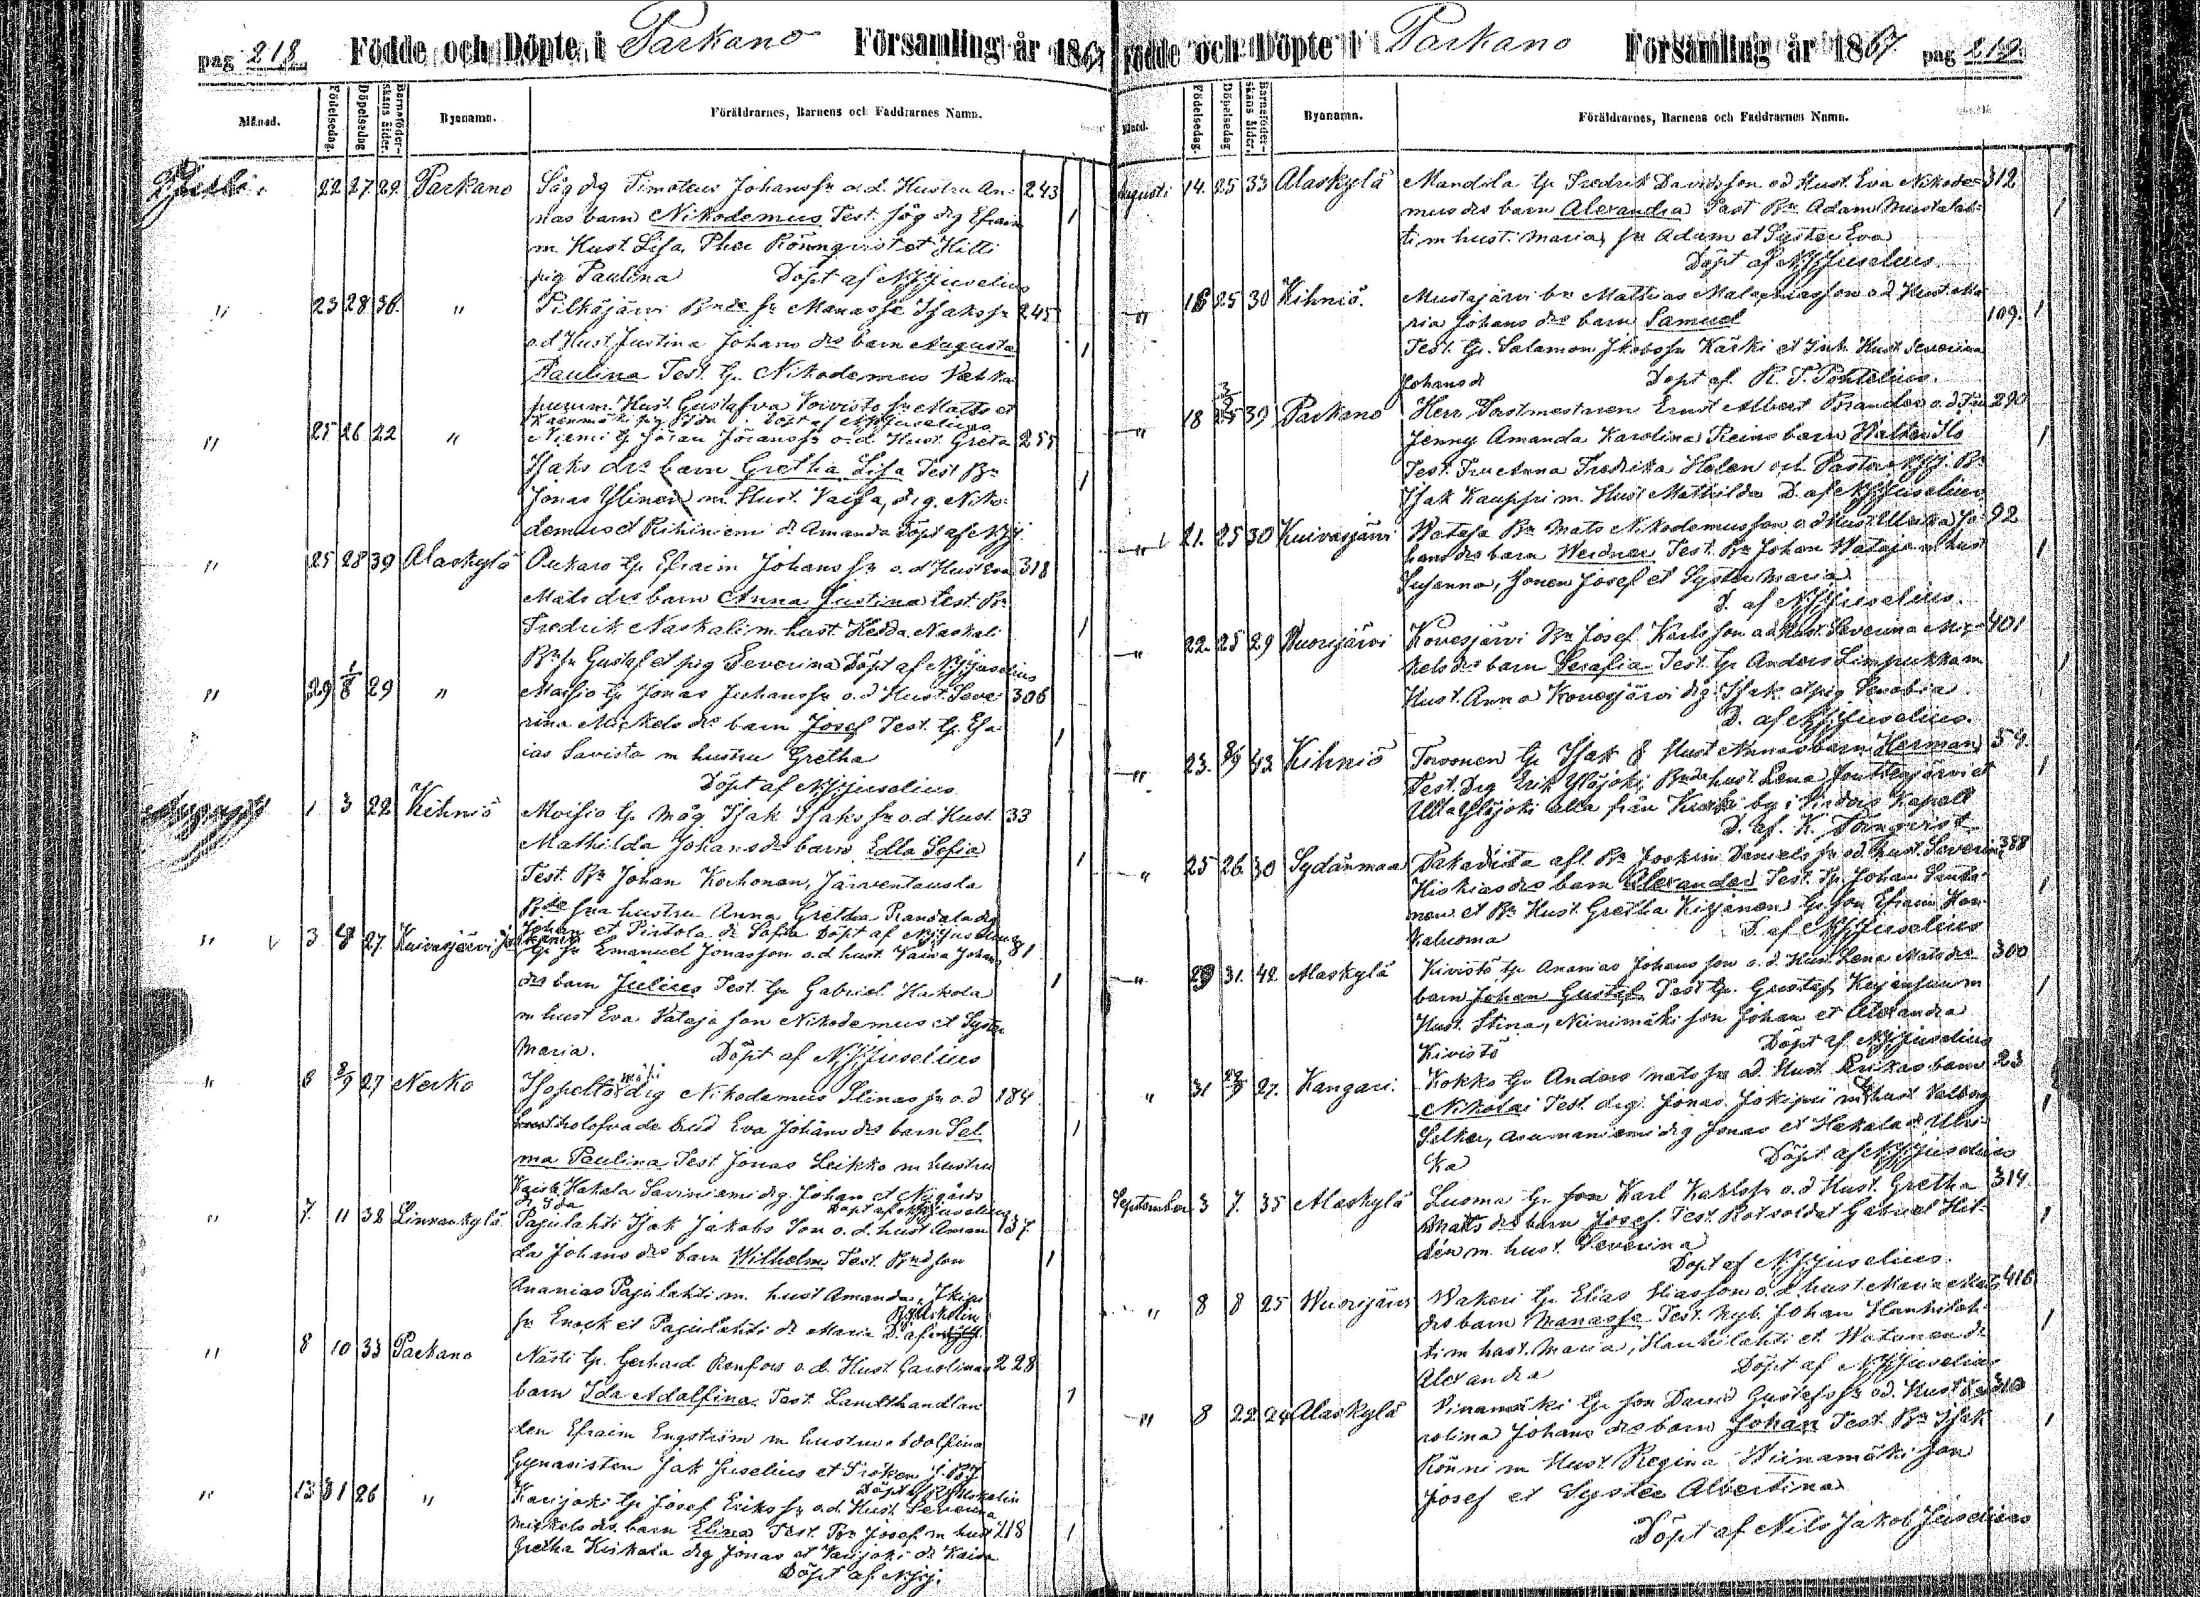 pag 218. Födde och Döpte i Parkano Församling år 1867
Månad. Födelsedag. Döpelsedag Barnaföder-skans ålder. Byanamn. Föräldrarnes, Barnens och Faddrarnes Namn.
22 27 29 Parkano Såg drg Timoteus Johansſn o.d. Hustru An- 243
nas barn Nikodemus Test. Såg drg Efraim
m. Hust. Lisa, Rönnqvist et
pig Paulina Döpt af N J Juselius
" 23 28 36. " Pilkäjärvi Bnde ſn Manasse Isaksſn 245
o.d Hust Justina Johans drs barn Augusta
Paulina Test. Tp. Nikodemus Vehka
m. Hust. Gustafva Koivisto ſn Matts et
Döpt af N J Juselius
" 25 26 22 " Niemi Tp Jöran Jöransſn o.d. Hust. Greta 255
Isaks drs barn Gretha Lisa Test Bn
Jonas Ylinen m Hust. Kaisa, drg. Niko-
demus et Rihiniemi dr Amanda Döpt af NJJ.
" 25 28 39 Alaskylä Tp Efraim Johansſn o.d Hust Eva 318
Mats drs barn Anna Justina Test Bn
Fredrik Naskali m. hust. Hedda Naskali
Bn ſn Gustaf et pig Severina Döpt af N J Juselius
" 29 1/8 29 " Tp Jonas Juhansſn o.d Hust. Seve 306
rina Mickels drs barn Josef Test. Tp. Esa-
ias Savista m hustru Gretha
Döpt af N J Juselius
1 3 22 Kihniö Moisio Tp måg Isak Isaksſn o.d Hust. 33
Mathilda Johans drs barn Edla Sofia
Test. Bn Johan Korhonen, Järventausta
Bnde ſna hustru Anna Gretha drg
Johan et dr Sofia Döpt af N J Juselius
" 3 27 Kuivasjärvi Tp ſn Emanuel Jonasson o.d hust. Johans 81
drs barn Julius Test. Tp Gabriel Harkola
m hust Eva Vataja son Nikodemus et Syster
Maria. Döpt af N J Juselius
" 6 8/9 27 Nerko drg Nikodemus ſn o.d 184
trolofvade brud Eva Johans drs barn Sel-
ma Paulina Test Jonas Leikko m hustru
Kaisa Hakala Saviniemi drg. Johan et Nygårds
dr Ida Döpt af N J Juselius
" 7. 11 38 Linnankylä Pajulahti Isak Jakobs son o.d. hust Aman 137
da Johans drs barn Wilhelm Test. Bnd son
Ananias Pajulahti m. hust Amanda,
ſn Enock et Pajulahti dr Maria D. af
" 8 10 33 Parkano Nästi Tp. Gerhard Renfors o.d. Hust Carolinas 228
barn Ida Adalfina. Test. Landthandlan
den Efraim Engström m hustru Adolfina
Gymnasisten Isak Juselius et Fröken J.
Döpt af
" 13 31 26 " Karijoki Tp Josef Eriksſn o.d. Hust. Severina
Mickels drs barn Elina Test. Bn Josef m hust 218
Gretha Kiskala drg Jonas et Karijoki dr Kaisa
Döpt af NJJ.
Födde och Döpte i Parkano Församling år 1867. pag 219.
Månad. Födelsedag. Döpelsedag Barnaföder-skans ålder. Byanamn. Föräldrarnes, Barnens och Faddrarnes Namn.
Augusti 14. 25 33 Alaskylä Mandila Tp Fredrik Davidsson o.d Hust. Eva Nikode- 312
mus drs barn Alexandra Test Bn Adam Mustalah-
ti m hust. Maria, ſn Adam et Syster Eva
Döpt af N J Juselius.
" 16 25 30 Kihniö. Mustajärvi bn Mathias Malachiasson o.d Hust. Ma
ria Johans drs barn Samuel 109.
Test. Tp. Salamon Jakobsſn Kärki et Inh. Hust Severina
Johans dr Döpt af. K. T. Pontelius.
" 18 39 Parkano Herr Forstmestaren Ernst Albert Brander o.d. Fru 290
Jenny Amanda Karolina Reins barn Walter Ilo
Test. Fru Anna Fredrika Helen och Pastor NJJ. Bn
Isak Kauppi m. Hust Mathilda D. af N J Juselius
" 21. 25 30 Kuivasjärvi Wataja Bn Mats Nikodemusson o.d Hust. Ulrika Jo- 92
hans drs barn Werdner Test. Bn Johan Wataja m hust
Susanna, Sonen Josef et Syster Maria
D. af N J Juselius.
" 22. 25 29 Wuorijärvi Kovesjärvi Bn Josef Karlsson o.d Hust. Severina Mic- 401
kels drs barn Serafia Test. Tp Anders Limpukka m
Hust. Anna Kovesjärvi drg Isak et pig Senobia
D. af N J Juselius.
" 23. 8/9 43 Kihniö Torvonen Tp Isak & Hust Annas barn Herman 54.
Test. Drg Erik Ylöjoki, Bnde hust. Lena et
Ulla Ylöjoki alla från by i Kapell
D. af. K. Törnqvist
" 25 26 30 Sydänmaa afl. Bn Joakim Danielsſn o.d. hust. Severina 388
Hiskias drs barn Alexander Test. Tp. Johan
nen et Bn Hust. Gretha Tp son Efraim Kan-
kaluoma D. af N J Juselius
" 29 31. 42 Alaskylä Kivistö Tp Ananias Johansson o.d. Hust Lena Mats drs 300
barn Johan Gustaf Test Tp. Gustaf m
Hust. Stina, Niinimäki son Johan et Alexandra
Kivistö Döpt af N J Juselius
" 31 27. Kangari. Kokko Tp Anders Matsſn o.d. Hust. Erikas barn 23
Nikolai Test. drg. Jonas Jokipii m hust Valborg
drg Jonas et Hakala dr Ulri-
ka Döpt af N J Juselius
September 3 7. 35 Alaskylä Luoma Tp son Karl Karlsſn o.d Hust. Gretha 314.
Matts drs barn Josef. Test. Rotsoldat Gabriel Hil-
dén m. hust. Severina
Döpt af N J Juselius.
" 8 8 25 Wuorijärvi Wakeri Tp Elias Eliasson o.d. hust Maria Mats 416
drs barn Manasse Test. Nyb. Johan Hanhilah-
ti m hust. Maria, Hanhilahti et Watanen dr
Alexandra Döpt af N J Juselius
" 8 22 24 Alaskylä Viinamäki Tp son David Gustafsſn o.d. Hust Ka 310
rolina Johans drs barn Johan Test. Bn Isak
Rönni m Hust. Regina Wiinamäki son
Josef et Syster Albertina
Döpt af Nils Jakob Juselius